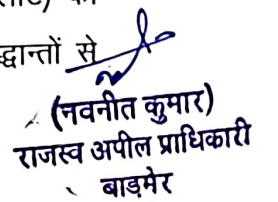 को
द्धान्तों से
(नवनीत कुमार)
राजस्व अपील प्राधिकारी
बाड़मेर